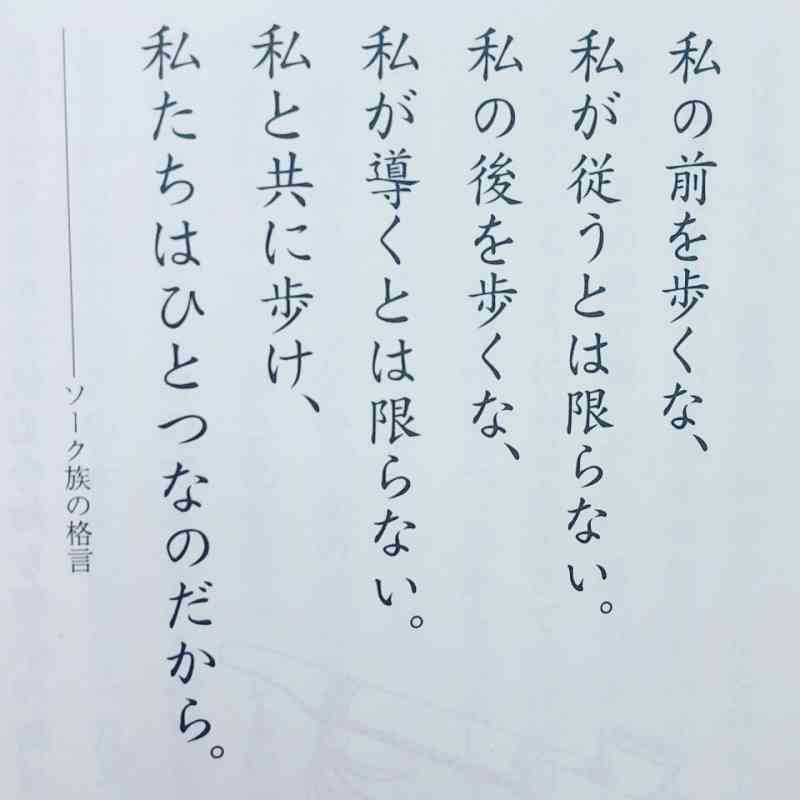 私の前を歩くな、
私が従うとは限らない。
私の後を歩くな、
私が導くとは限らない。
私と共に歩け、
私たちはひとつなのだから。
――ソーク族の格言